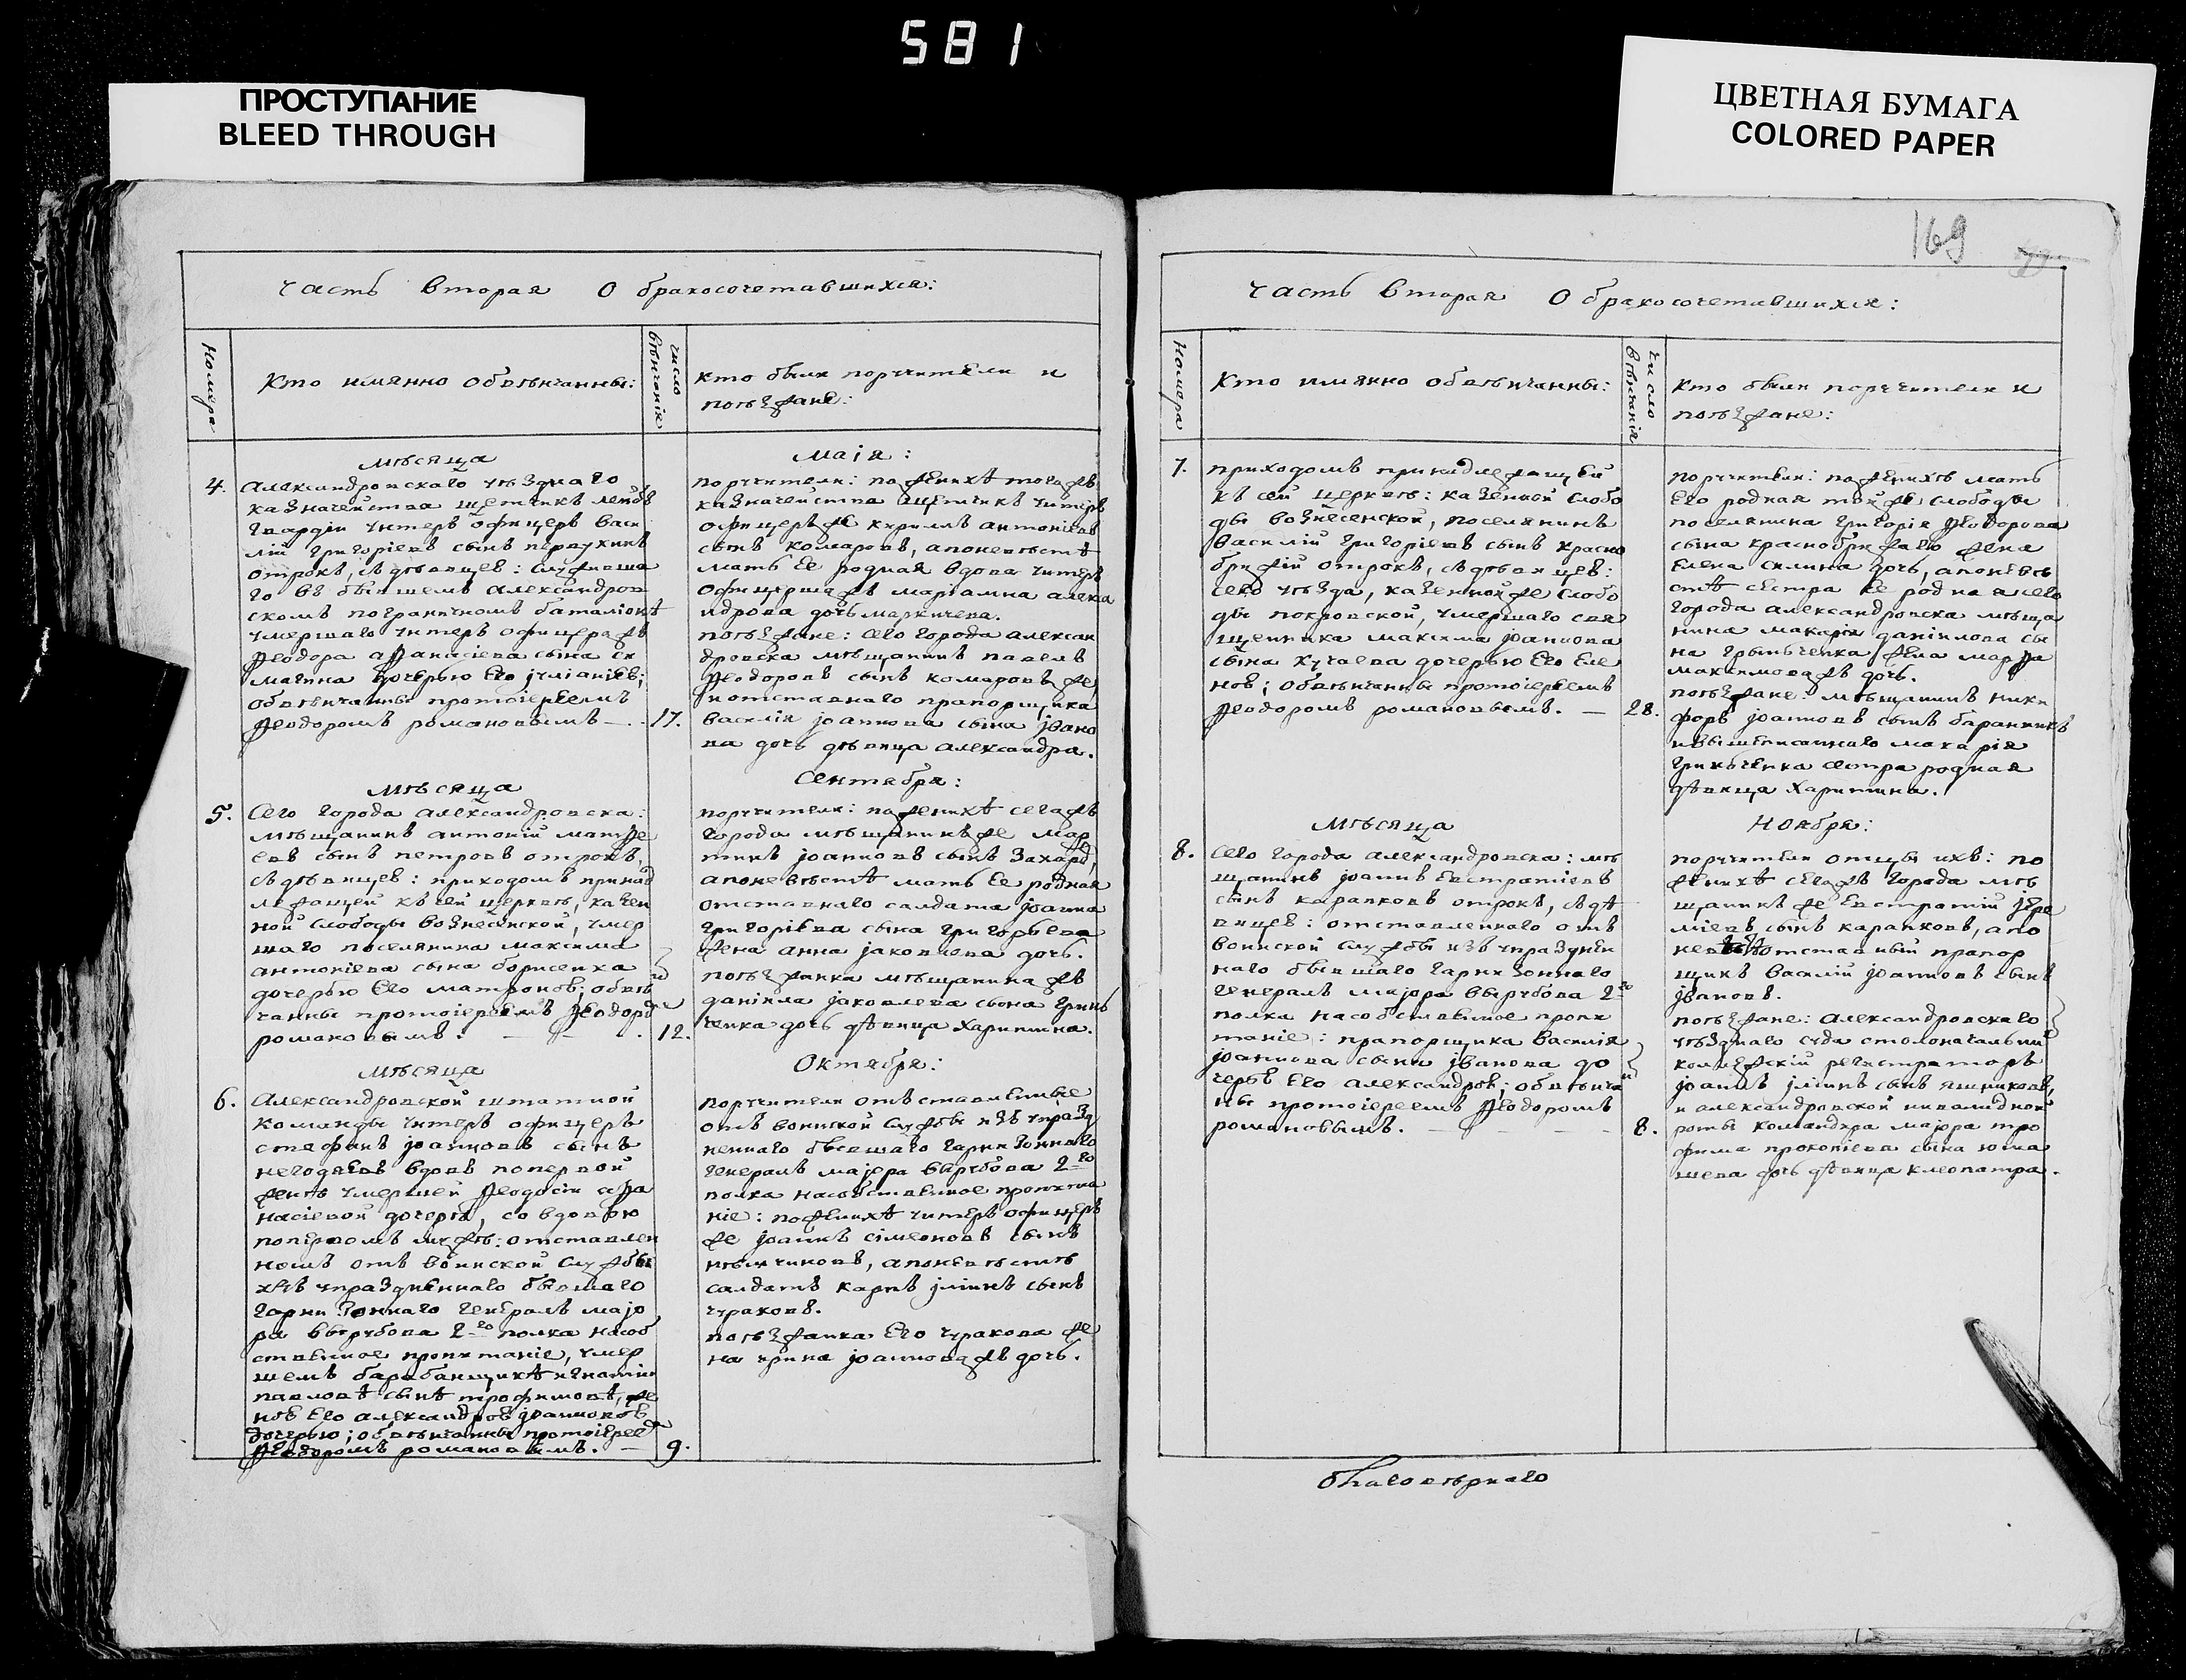 581
ПРОСТУПАНИЕ
BLEED THROUGH
ЦВЕТНАЯ БУМАГА
COLORED PAPER
169
Часть вторая О бракосочетавшихся:
Номера
Кто имянно обвѣнчанны:
число
вѣнчанія
Кто были поручители и
поѣзжане:
Мѣсяца
4. Александровскаго уѣзднаго
казначейства щетчикъ лейбъ
гвардіи унтеръ офицеръ Васи
лій Григоріевъ сынъ первухинъ
отрокъ, съ дѣвицею: служивша
го въ бывшемъ Александров
скомъ пограничномъ баталіонѣ
умершаго унтеръ офицера жъ
Ѳеодора Аѳанасіева сына см
магина дочерью Его іуліаніею;
обвѣнчанны протоіереемъ
Ѳеодоромъ романовымъ — 17.
Маія:
поручители: по женихѣ тогожъ
казначейства щетчикъ унтеръ
офицеръ же кирилъ антоніевъ
сынъ комаровъ, а по невѣстѣ
мать Ее родная вдова унтеръ
офицерша жъ маріамна алекса
ндрова дочь маркичева.
поѣзжане: Сего города алексан
дровска мѣщанинъ павелъ
Ѳеодоровъ сынъ комаровъ же,
и отставнаго прапорщика
василія іоаннова сына івано
ва дочь дѣвица александра.
Мѣсяца
5. Сего города александровска:
мѣщанинъ антоній матѳе
евъ сынъ петровъ отрокъ,
съ дѣвицею: приходомъ принад
лежащей къ сей церквѣ, казен
ной слободы вознесенской, умер
шаго поселянина максима
антоніева сына борисенка
дочерью Его матроною; обвѣ
нчанны протоіереемъ Ѳеодоро
романовымъ. 12.
Сентября:
поручители: по женихѣ сегожъ
города мѣщанинъ же мар
тинъ іоанновъ сынъ захаров,
а по невѣстѣ мать Ее родная
отставнаго салдата іоанна
григоріева сына григорьева
жена анна іаковлева дочь.
поѣзжанка мѣщанина жъ
даніила іаковлева сына гринь
ченка дочь дѣвица харитина.
Мѣсяца
6. Александровской штатной
команды унтеръ офицеръ
стефанъ іоанновъ сынъ
негодяевъ вдовъ по первой
женѣ умершей Ѳеодосіи аѳа
насіевой дочерѣ, со вдовою
по первомъ мужѣ: отставлен
номъ отъ воинской службы
изъ упраздненнаго бывшаго
гарнизоннаго генералъ маіо
ра вырубова 2го полка на соб
ственное пропитаніе, умер
шемъ барабанщикѣ игнатіи
павловѣ сынѣ трофимовѣ, же
ною Его александрою іоанновою
дочерью; обвѣнчанны протоіерее
Ѳеодоромъ романовымъ. — 9.
Октября:
поручители отъставленные
отъ воинской службы изъ упразд
неннаго бывшаго гарнизоннаго
генералъ маіора вырубова 2го
полка на собственное пропита
ніе: по женихѣ унтеръ офицеръ
же іоаннъ сімеоновъ сынъ
нѣмчиновъ, а по невѣстѣ
салдатъ карпъ іліинъ сынъ
чураковъ.
поѣзжанка Его чуракова же
на ирина іоаннова жъ дочь.
Часть вторая О бракосочетавшихся:
Номера
Кто имянно обвѣнчанны:
число
вѣнчанія
Кто были поручители и
поѣзжане:
7. приходомъ принадлежащей
къ сей церквѣ: казенной слобо
ды вознесенской, поселянинъ
василій григоріевъ сынъ красно
брижій отрокъ, съ дѣвицею:
сего уѣзда, казенной же слобо
ды покровской, умершаго свя
щенника максима іоаннова
сына кучаева дочерью Его Еле
ною; обвѣнчанны протоіереемъ
Ѳеодоромъ романовымъ. — 28.
поручители: по женихѣ мать
Его родная той же слободы
поселянина григорія Ѳеодорова
сына краснобрижаго жена
Елена савина дочь, а по невѣ
стѣ сестра Ее родная сего
города александровска мѣща
нина макарія даніилова сы
на гриньченка жена марѳа
максимова жъ дочь.
поѣзжане: мѣщанинъ ники
форъ іоанновъ сынъ баранникъ
и вышеписаннаго макарія
гриньченка сестра родная
дѣвица харитина.
Мѣсяца
8. Сего города александровска: мѣ
щанинъ іоаннъ Евстратіевъ
сынъ карапковъ отрокъ, съ дѣ
вицею: отставленнаго отъ
воинской службы изъ упразднен
наго бывшаго гарнизоннаго
генералъ маіора вырубова 2го
полка на собственное пропи
таніе: прапорщика василія
іоаннова сына іванова до
черью Его александрою; обвѣнча
ны протоіереемъ Ѳеодоромъ
романовымъ. 8.
Ноября:
поручители отцы ихъ: по
женихѣ сегожъ города мѣ
щанинъ же Евстратій іере
міевъ сынъ карапковъ, а по
невѣстѣ отставный прапор
щикъ василій іоанновъ сынъ
івановъ.
поѣзжане: александровскаго
уѣзднаго суда столоначальни
колежскій регистраторъ
іоаннъ іліинъ сынъ яшниковъ,
и александровской инвалидной
роты командира маіора тро
фима прокопіева сына юма
шева дочь дѣвица клеопатра.
благовѣрнаго